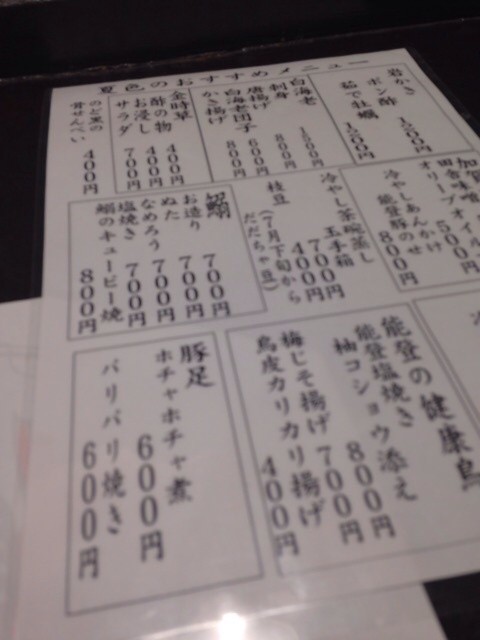 夏色のおすすめメニュー
岩がき
ポン酢 1,500円
茹で牡蠣 1,500円
白海老
刺身 1,200円
唐揚げ 800円
白海老団子 600円
かき揚げ 800円
金時草
酢の物 400円
お浸し 400円
サラダ 700円
のど黒の
骨せんべい 400円
加賀
田舎味噌
オリーブオイル 500円
冷やしあんかけ
能登豚のせ
冷やし茶碗蒸し 700円
玉手箱 400円
枝豆
(7月下旬から
だだちゃ豆)
鰯
お造り 700円
ぬた 700円
なめろう 700円
塩焼き 700円
鰯のキューピー焼 800円
能登の健康鳥
能登塩焼き
柚コショウ添え 800円
梅じそ揚げ 700円
鳥皮カリカリ揚げ 400円
豚足
ホチャホチャ煮 600円
パリパリ焼き 600円